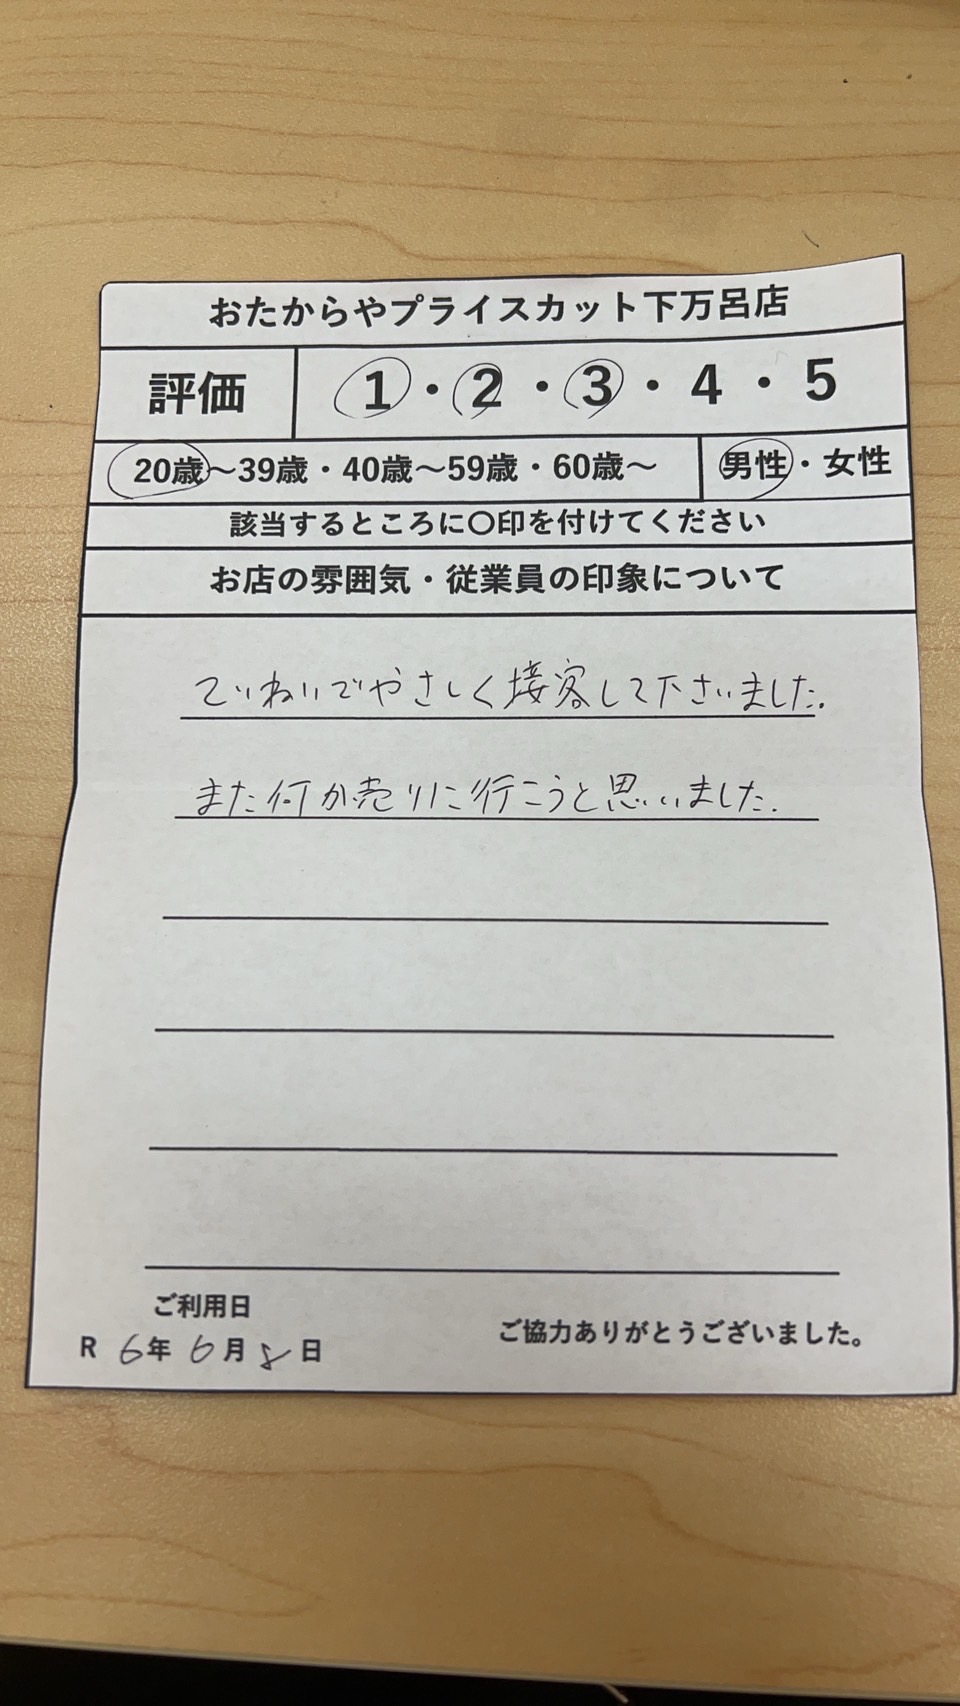 おたからやプライスカット下万呂店
評価 1・2・3・4・5
20歳〜39歳・40歳〜59歳・60歳〜 男性・女性
該当するところに〇印を付けてください
お店の雰囲気・従業員の印象について
ていねいでやさしく接客して下さいました。
また何か売りに行こうと思いました。
ご利用日
R 6年 6月 8日 ご協力ありがとうございました。